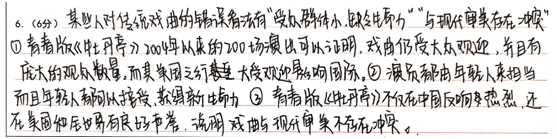 6.（6分）某些人对传统戏曲的错误看法有“受众群体小,缺乏生命力”“与现代审美存在冲突”
①青春版《牡丹亭》2004年以来的200场演出可以证明,戏曲仍受大众欢迎,并且有
庞大的观众数量,而其美国之行甚至大受欢迎轰动国际。②演员都由年轻人来担当
而且年轻人都可以接受,散焕新生命力 ③青春版《牡丹亭》不仅在中国反响多热烈,还
在美国和全世界有良好声誉,说明戏曲与现代审美不存在冲突。